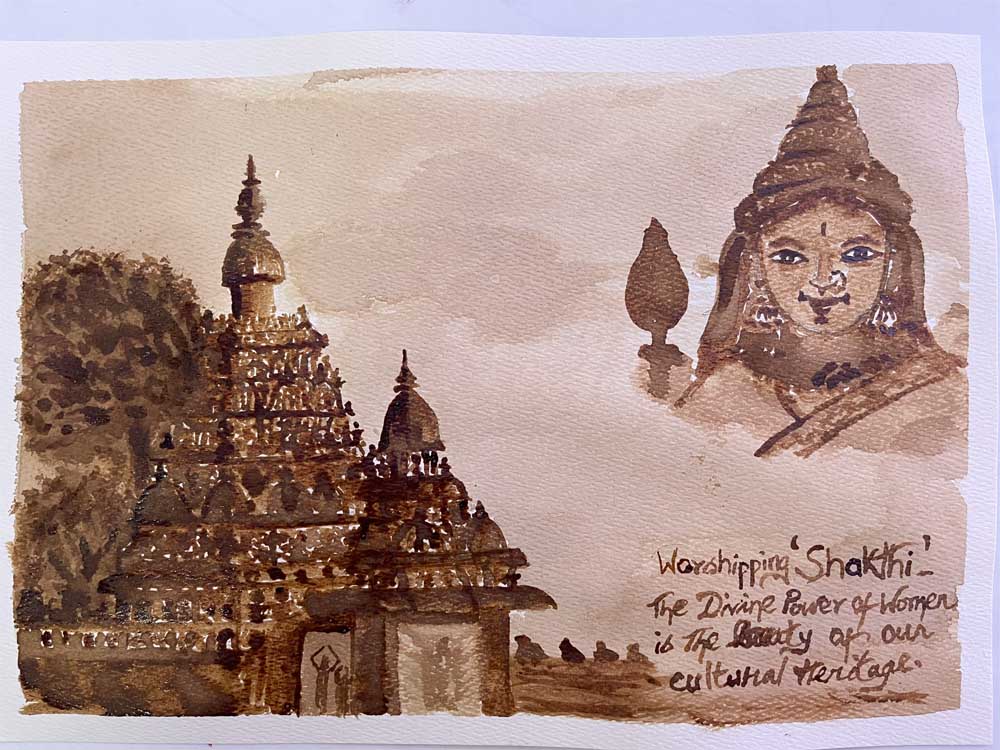 Worshipping 'Shakthi'-
The Divine Power of Women
is the Beauty of our
cultural Heritage.